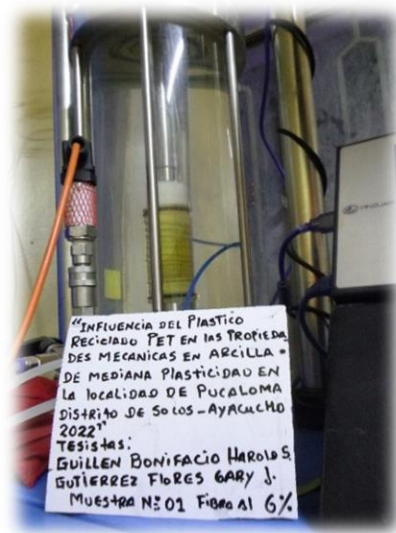 "INFLUENCIA DEL PLASTICO
RECICLADO PET EN LAS PROPIEDA
DES MECANICAS EN ARCILLA -
DE MEDIANA PLASTICIDAD EN
LA LOCALIDAD DE PUCALOMA
DISTRITO DE SOCOS - AYACUCHO
2022"
TESISTAS:
GUILLEN BONIFACIO HAROLD S.
GUTIERREZ FLORES GARY J.
MUESTRA Nº 01 FIBRA AL 6%